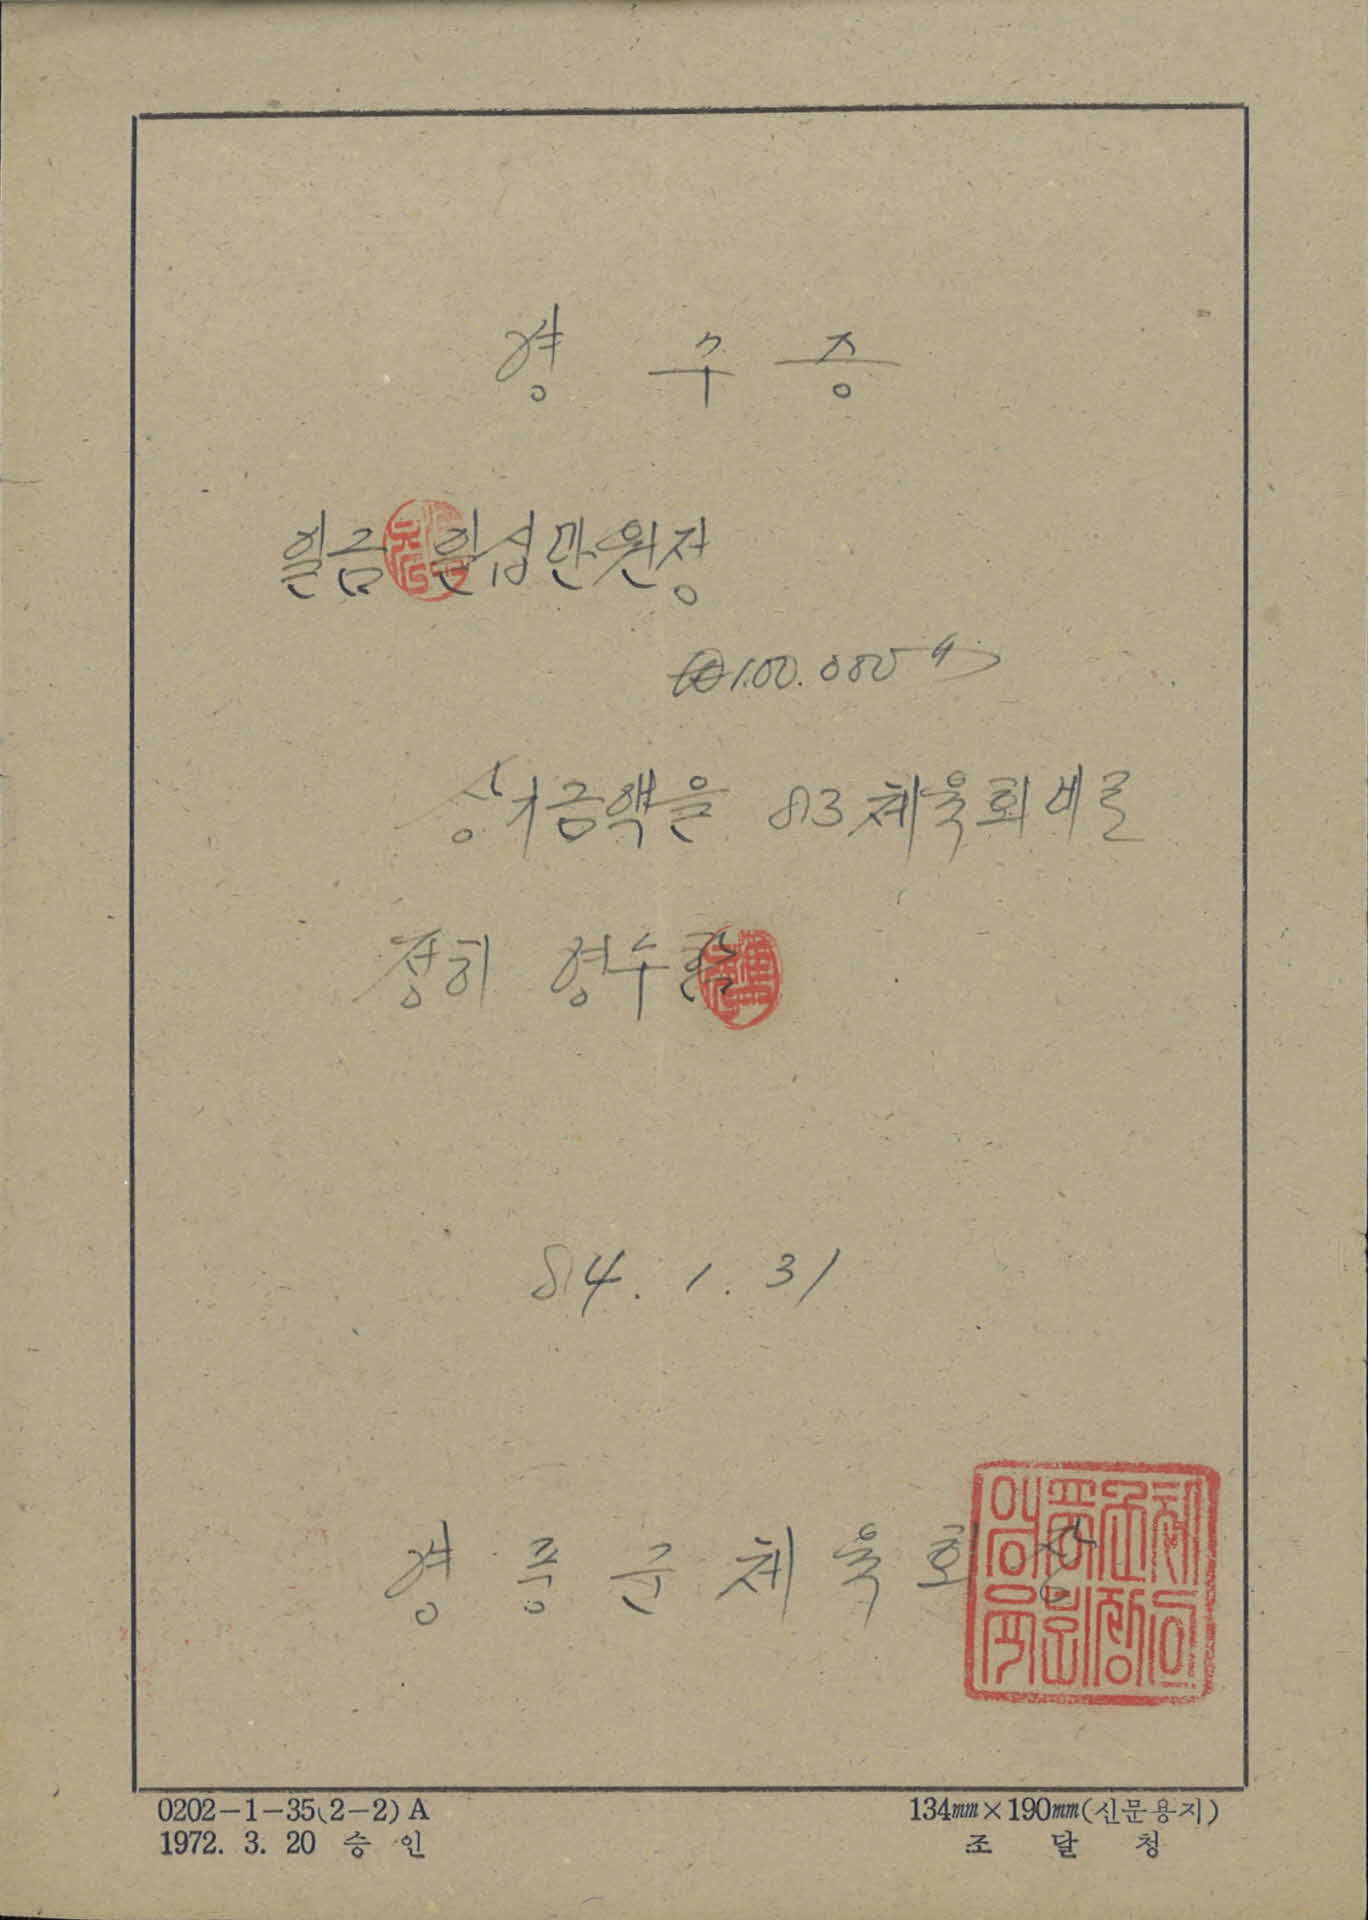 영 수 증
일금 일십만원정
₩100.000원
상기금액을 83체육회비로
정히 영수함
84. 1. 31
영 풍 군 체 육 회 장
0202-1-35(2-2) A
1972. 3. 20 승 인
134㎜×190㎜(신문용지)
조 달 청